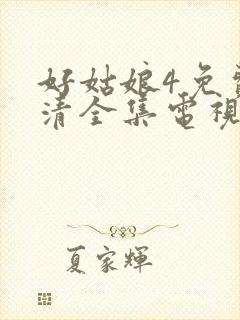 好姑娘4免
清全集電視
夏家輝